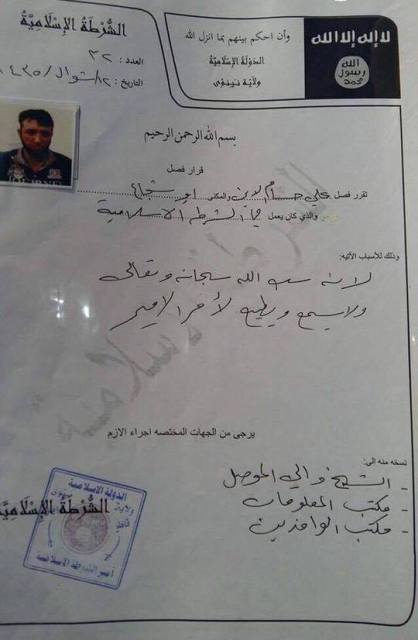 الشُّرْطَةُ الإِسْلَامِيَّةُ
وأن احكم بينهم بما انزل الله
لا إله إلا الله
الله
رسول
محمد
الدَّوْلَةُ الإِسْلَامِيَّةُ
وِلَايَةُ نِينَوَى
العدد : ٣٢
التاريخ : ١٢/ شوال / ١٤٣٥
بسم الله الرحمن الرحيم
قرار فصل
تقرر فصل علي حسام الدين والمكنى ابو شجاع
والذي كان يعمل في الشرطة الاسلامية
وذلك للأسباب الآتيه:
لانه سب الله سبحانه وتعالى
ولا يسمع ويطيع لأمر الامير
يرجى من الجهات المختصه اجراء الازم
نسخه منه الى:
- الشيخ والي الموصل
- مكتب المعلومات
- مكتب الوافدين
الدولة الاسلامية
ولاية نينوى
الشُّرْطَةُ الإِسْلَامِيَّةُ
أمير الشرطة الاسلامية